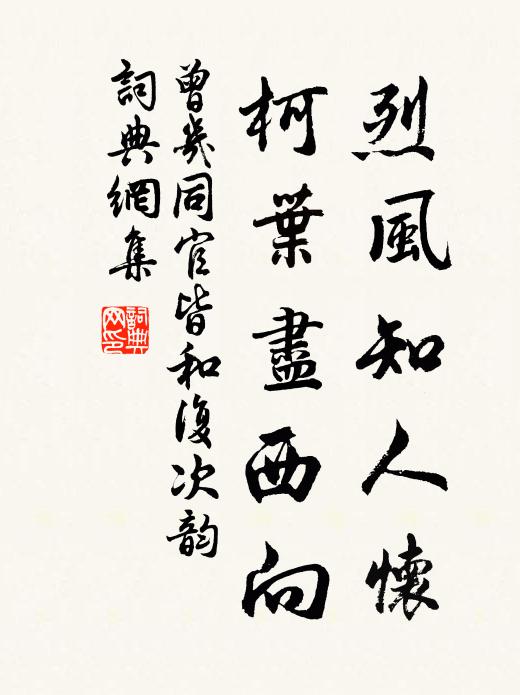 烈風知人懷
柯葉盡西向
曾幾同官皆和復次韵
詞典網集
詞典网印